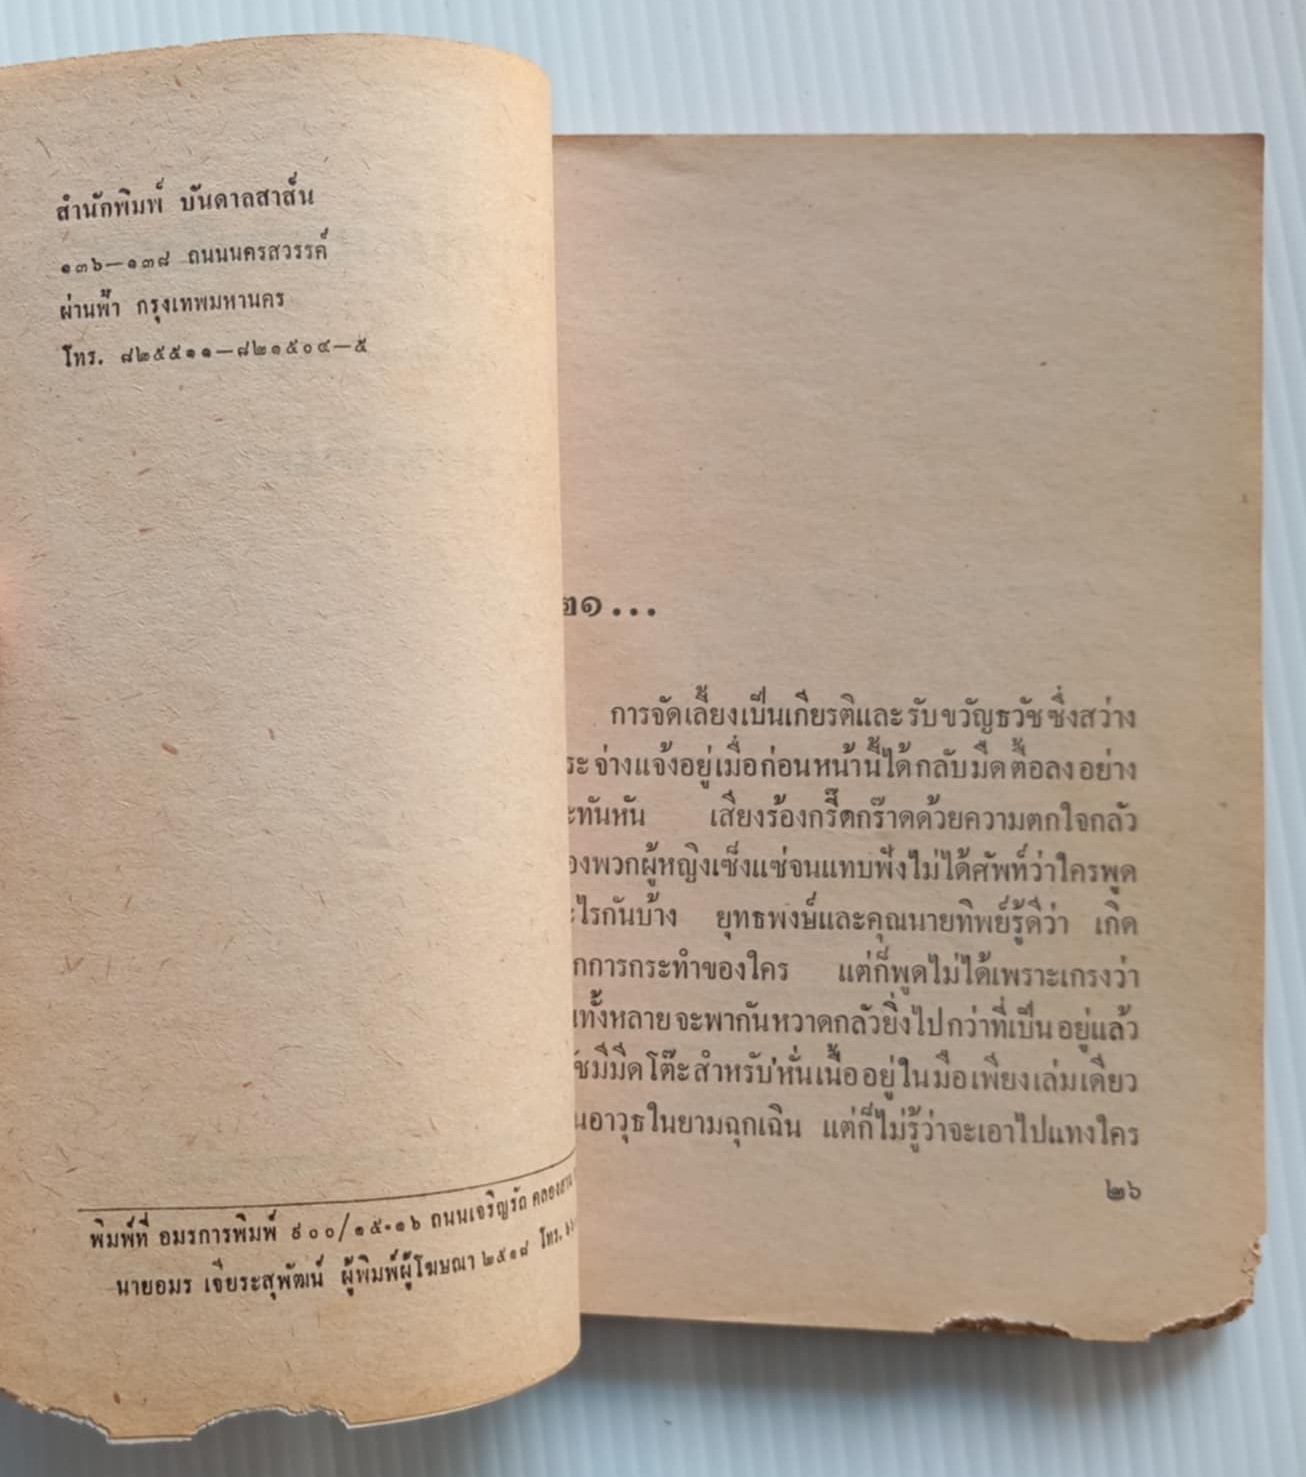 สำนักพิมพ์ บันดาลสาส์น
๑๓๖—๑๓๘ ถนนนครสวรรค์
ผ่านฟ้า กรุงเทพมหานคร
โทร. ๘๒๕๕๑๑—๘๒๑๕๐๔—๕
พิมพ์ที่ อมรการพิมพ์ ๙๐๐/๑๕-๑๖ ถนนเจริญรัถ คลองสาน
นายอมร เจียระสุพัฒน์ ผู้พิมพ์ผู้โฆษณา ๒๕๑๘ โทร.
๒๑...
การจัดเลี้ยงเป็นเกียรติและรับขวัญธวัชซึ่งสว่าง
ระจ่างแจ้งอยู่เมื่อก่อนหน้านี้ได้กลับมืดตื้อลงอย่าง
ะทันหัน เสียงร้องกรี๊ดกร๊าดด้วยความตกใจกลัว
องพวกผู้หญิงเซ็งแซ่จนแทบฟังไม่ได้ศัพท์ว่าใครพูด
ะไรกันบ้าง ยุทธพงษ์และคุณนายทิพย์รู้ดีว่า เกิด
กการกระทำของใคร แต่ก็พูดไม่ได้เพราะเกรงว่า
นทั้งหลายจะพากันหวาดกลัวยิ่งไปกว่าที่เป็นอยู่แล้ว
ัชมีมีดโต๊ะสำหรับหั่นเนื้ออยู่ในมือเพียงเล่มเดียว
นอาวุธในยามฉุกเฉิน แต่ก็ไม่รู้ว่าจะเอาไปแทงใคร
๒๖